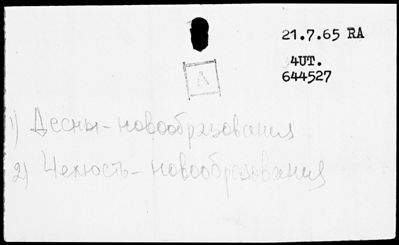 21.7.65 RA
4UT.
644527
A
1) Десны-новообразования
2) Челюсть-новообразования